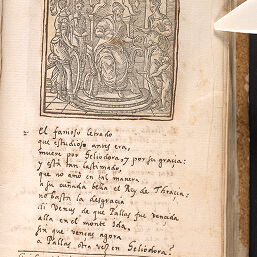 El famoso letrado
que estudioso antes era,
muere por Geliodora, y por su gracia:
y está tan lastimado,
que no amó en tal manera
a su cuñada bella el Rey de Thracia:
no basta la desgracia
di Venus de que Pallas fue vencida
alla en el monte Ida,
sin que vencas agora
a Pallas otra vez en Geliodora?